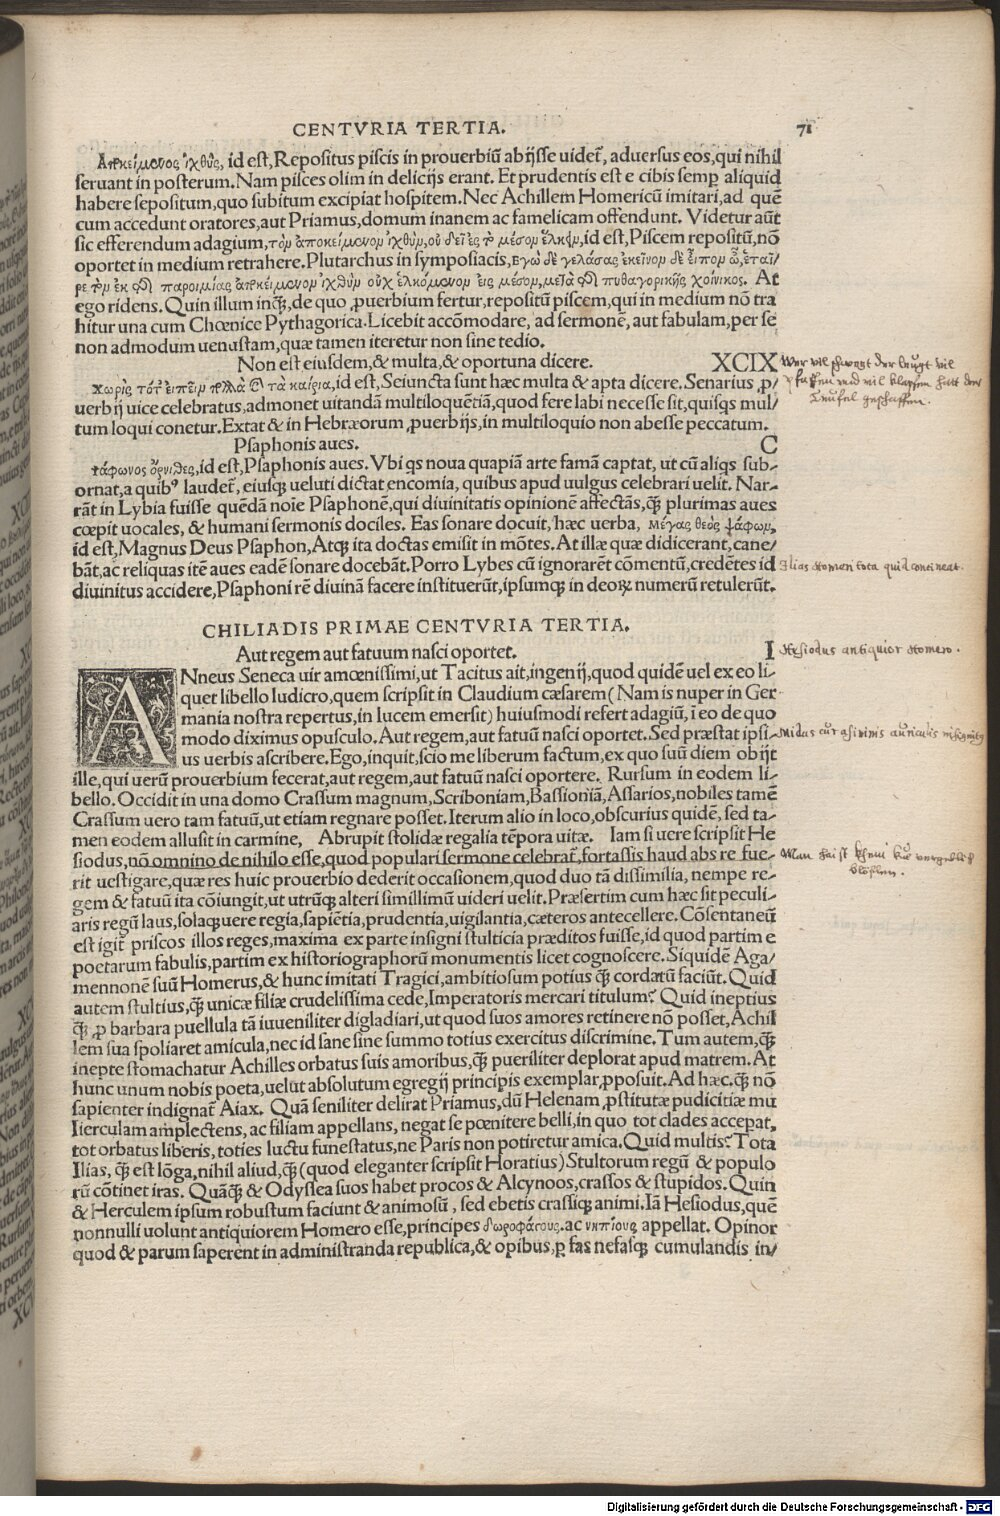 CENTVRIA TERTIA. 71
Ἀποκείμενος ἰχθὺς, id est, Repositus piscis in prouerbiũ abijsse uidet᷑, aduersus eos, qui nihil
seruant in posterum. Nam pisces olim in delicijs erant. Et prudentis est e cibis semꝑ aliquid
habere sepositum, quo subitum excipiat hospitem. Nec Achillem Homericũ imitari, ad quẽ
cum accedunt oratores, aut Priamus, domum inanem ac famelicam offendunt. Videtur aũt
sic efferendum adagium, τὸν ἀποκείμενον ἰχθὺν, οὐ δεῖ ἐς τὸ μέσον ἕλκειν, id est, Piscem repositũ, nõ
oportet in medium retrahere. Plutarchus in symposiacis, Εγὼ δὲ γελάσας ἐκεῖνον δὲ εἶπον ὦ, ἑταῖ/
ρε τὸν ἐκ τῆς παροιμίας ἀποκείμενον ἰχθὺν οὐχ ἑλκόμενον εἰς μέσον, μετὰ τῆς πυθαγορικῆς χοίνικος. At
ego ridens. Quin illum inqͫ, de quo ꝓuerbium fertur, repositũ piscem, qui in medium nõ tra
hitur una cum Chœnice Pythagorica. Licebit accõmodare, ad sermonẽ, aut fabulam, per se
non admodum uenustam, quæ tamen iteretur non sine tedio.
Non est eiusdem, & multa, & oportuna dicere. XCIX
χωρὶς τό τ᾽ εἰπεῖν πολλὰ καὶ τὰ καίρια, id est, Seiuncta sunt hæc multa & apta dicere. Senarius ꝓ/
uerbij uice celebratus, admonet uitandã multiloquẽtiã, quod fere labi necesse sit, quisqs mul/
tum loqui conetur. Extat & in Hebræorum ꝓuerbijs, in multiloquio non abesse peccatum.
Psaphonis aues. C
ψάφωνος ὄρνιθες, id est, Psaphonis aues. Vbi qs noua quapiã arte famã captat, ut cũ aliqs sub-
ornat, a quibꝰ laudet᷑, eiusꝗ ueluti dictat encomia, quibus apud uulgus celebrari uelit. Nar-
rãt in Lybia fuisse quẽdã noĩe Psaphonẽ, qui diuinitatis opinionẽ affectãs, ꝗͫ plurimas aues
cœpit uocales, & humani sermonis dociles. Eas sonare docuit, hæc uerba, μέγας θεὸς ψάφων,
id est, Magnus Deus Psaphon, Atꝗ ita doctas emisit in mõtes. At illæ quæ didicerant, cane/
bãt, ac reliquas itẽ aues eadẽ sonare docebãt. Porro Lybes cũ ignorarẽt cõmentũ, credẽtes id
diuinitus accidere, Psaphoni rẽ diuinã facere instituerũt, ipsumꝗ in deoꝝ numerũ retulerũt.
CHILIADIS PRIMAE CENTVRIA TERTIA.
Aut regem aut fatuum nasci oportet. I
ANneus Seneca uir amœnissimi, ut Tacitus ait, ingenij, quod quidẽ uel ex eo li-
quet libello ludicro, quem scripsit in Claudium cæsarem (Nam is nuper in Ger
mania nostra repertus, in lucem emersit) huiusmodi refert adagiũ, ĩ eo de quo
modo diximus opusculo. Aut regem, aut fatuũ nasci oportet. Sed præstat ipsi-
us uerbis ascribere. Ego, inquit, scio me liberum factum, ex quo suũ diem obijt
ille, qui uerũ prouerbium fecerat, aut regem, aut fatuũ nasci oportere. Rursum in eodem li-
bello. Occidit in una domo Crassum magnum, Scriboniam, Bassioniã, Assarios, nobiles tamẽ
Crassum uero tam fatuũ, ut etiam regnare posset. Iterum alio in loco, obscurius quidẽ, sed ta-
men eodem allusit in carmine, Abrupit stolidæ regalia tẽpora uitæ. Iam si uere scripsit He
siodus, nõ omnino de nihilo esse, quod populari sermone celebrat᷑, fortassis haud abs re fue-
rit uestigare, quæ res huic prouerbio dederit occasionem, quod duo tã dissimilia, nempe re-
gem & fatuũ ita cõiungit, ut utrũꝗ alteri simillimũ uideri uelit. Præsertim cum hæc sit peculi-
aris regũ laus, solaꝗ uere regia, sapiẽtia, prudentia, uigilantia, cæteros antecellere. Cõsentaneũ
est igit᷑ priscos illos reges, maxima ex parte insigni stulticia præditos fuisse, id quod partim e
poetarum fabulis, partim ex historiographorũ monumentis licet cognoscere. Siquidẽ Aga/
mennonẽ suũ Homerus, & hunc imitati Tragici, ambitiosum potius ꝗͫ cordatũ faciũt. Quid
autem stultius, ꝗͫ unicæ filiæ crudelissima cede, Imperatoris mercari titulum? Quid ineptius
ꝗͫ, ꝓ barbara puellula tã iuueniliter digladiari, ut quod suos amores retinere nõ posset, Achil
lem sua spoliaret amicula, nec id sane sine summo totius exercitus discrimine. Tum autem, ꝗͫ
inepte stomachatur Achilles orbatus suis amoribus, ꝗͫ pueriliter deplorat apud matrem. At
hunc unum nobis poeta, uelut absolutum egregij principis exemplar ꝓposuit. Ad hæc, ꝗͫ nõ
sapienter indignat᷑ Aiax. Quã seniliter delirat Priamus, dũ Helenam ꝓstitutæ pudicitiæ mu
lierculam amplectens, ac filiam appellans, negat se pœnitere belli, in quo tot clades accepat,
tot orbatus liberis, toties luctu funestatus, ne Paris non potiretur amica. Quid multis? Tota
Ilias, ꝗͫ est lõga, nihil aliud, ꝗͫ (quod eleganter scripsit Horatius) Stultorum regũ & populo
rũ cõtinet iras. Quãꝗͫ & Odyssea suos habet procos & Alcynoos, crassos & stupidos. Quin
& Herculem ipsum robustum faciunt & animosũ, sed ebetis crassiꝗ animi. Iã Hesiodus, quẽ
nonnulli uolunt antiquiorem Homero esse, principes δωροφάγους. ac νηπίους appellat. Opinor
quod & parum saperent in administranda republica, & opibus, ꝑ fas nefasꝗ cumulandis in/
Wer vil schwegt der leugt vil
pfaffen und vil klapfen hatt der
Teüfel geschaffen.
Ilias Homeri tota quid contineat.
Hesiodus antiquior Homero.
Midas cur asininis auriculis insignitus
Digitalisierung gefördert durch die Deutsche Forschungsgemeinschaft - DFG